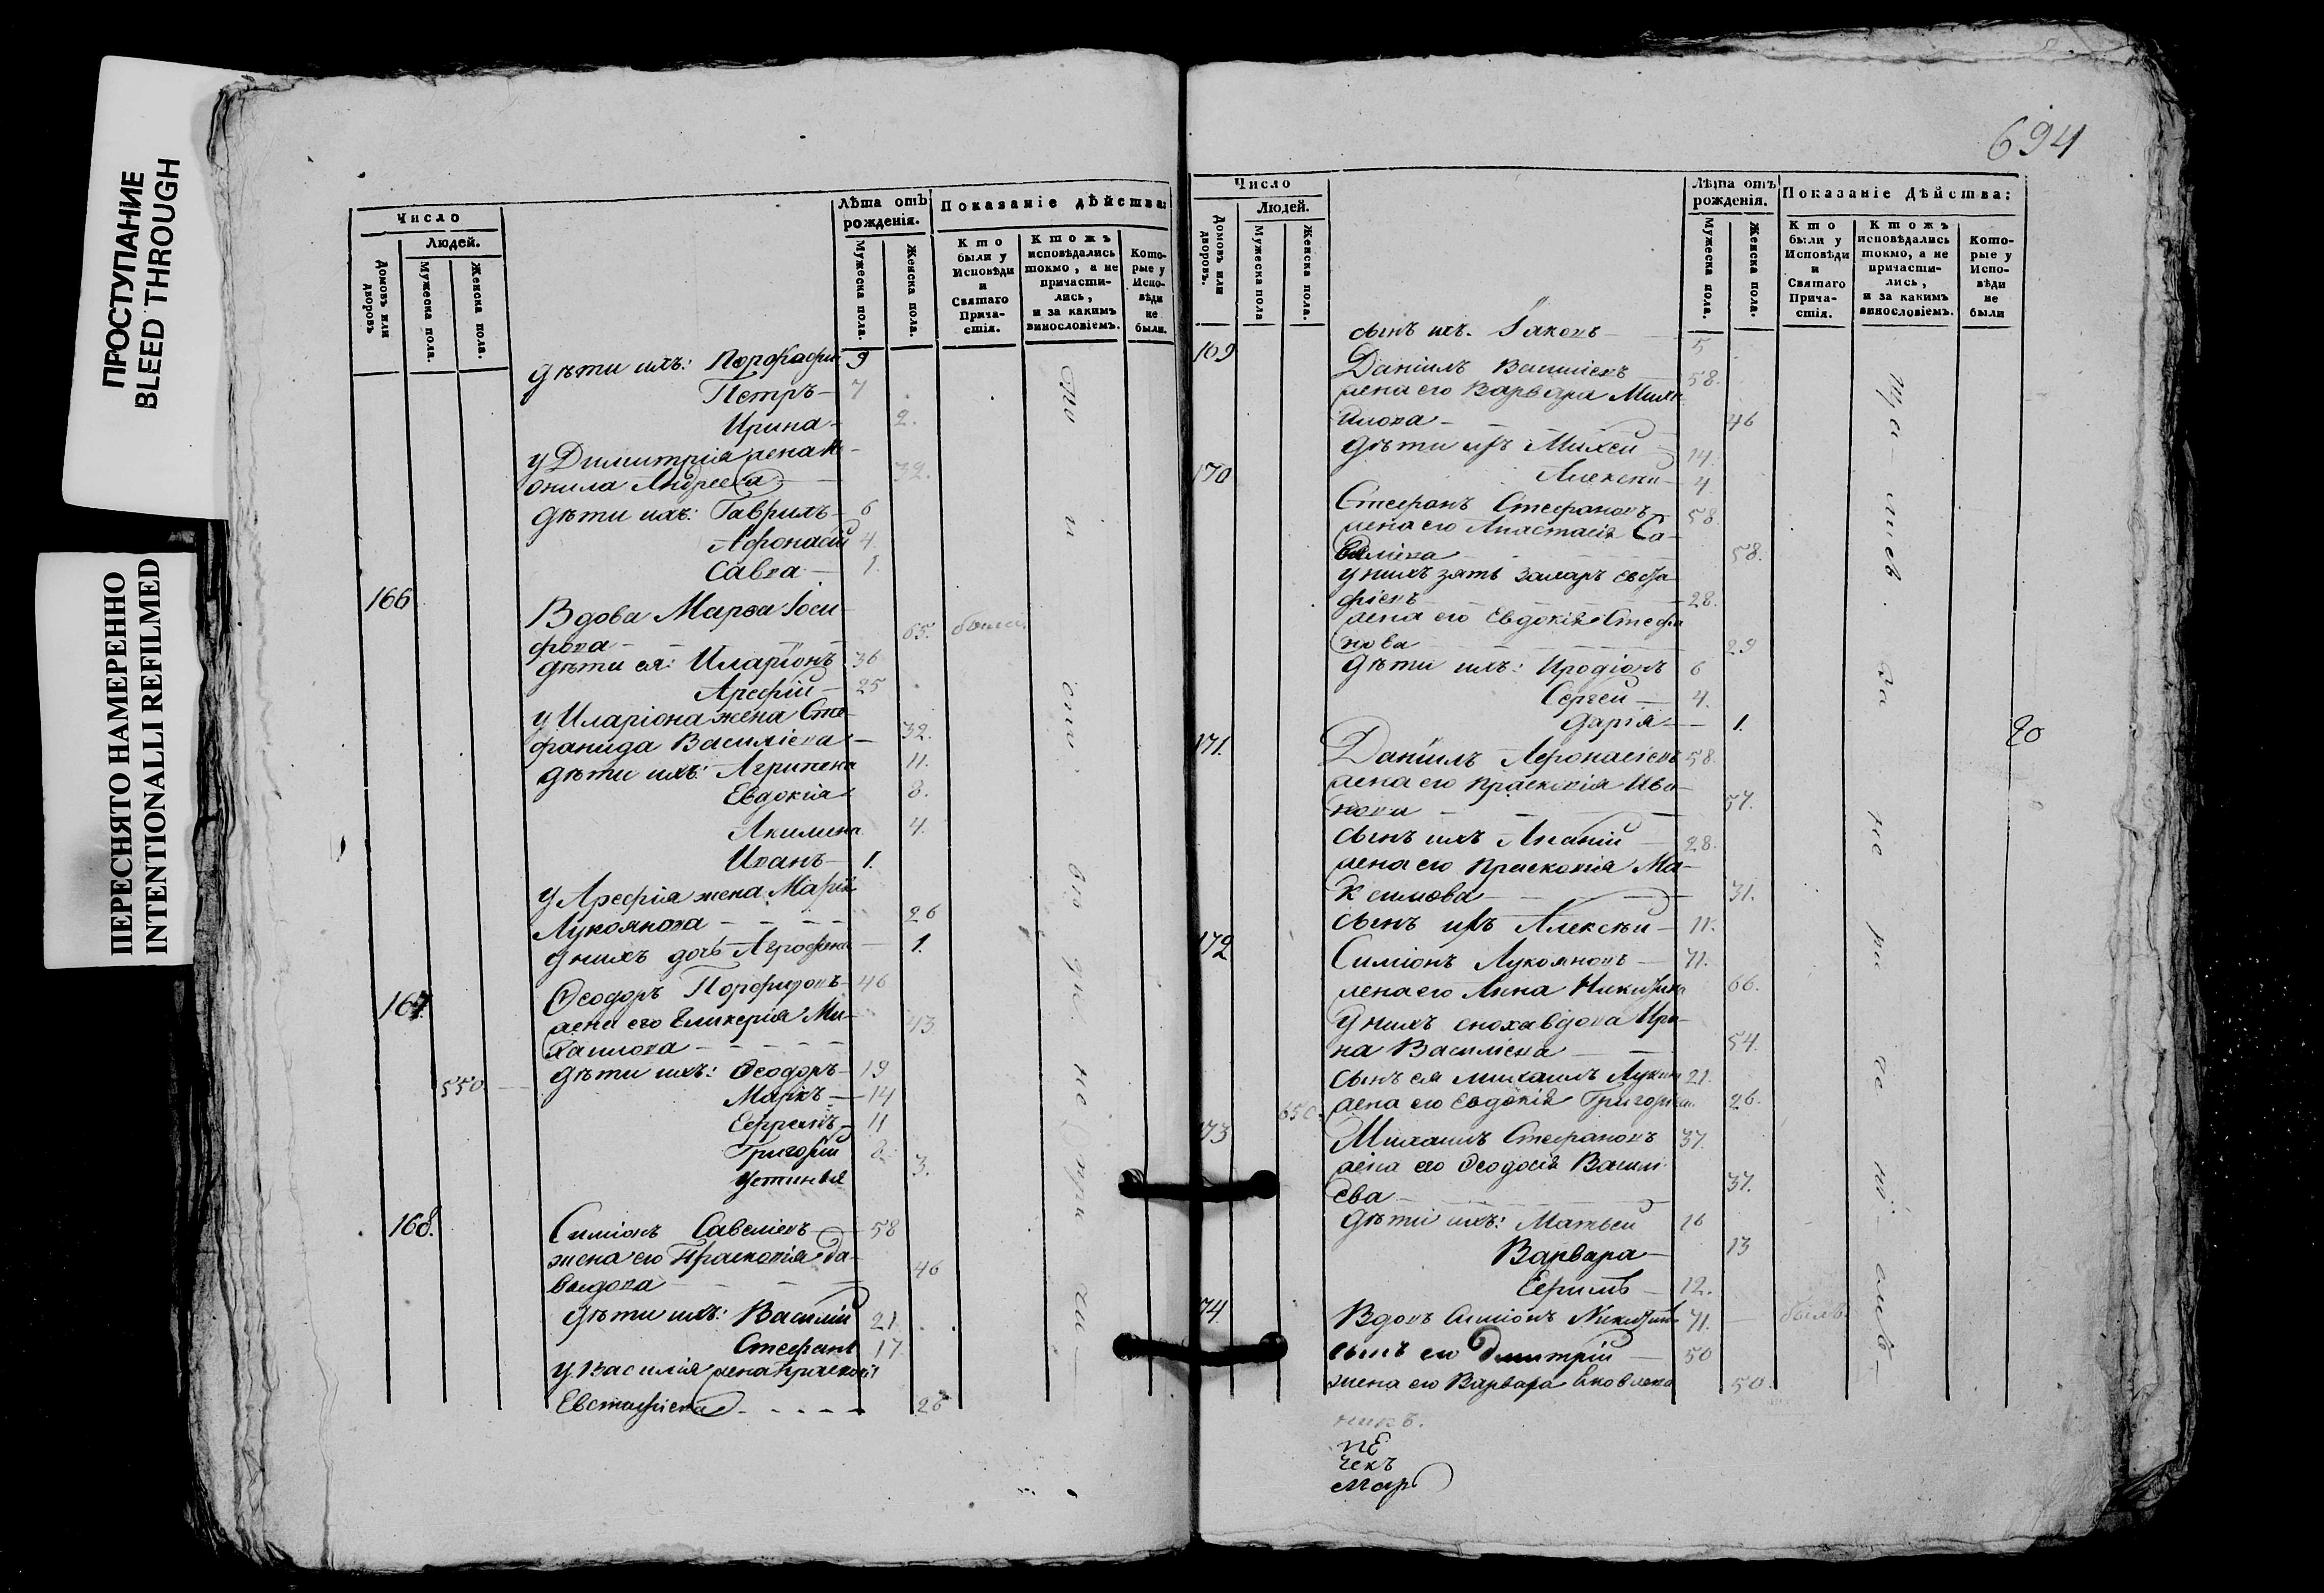 ПРОСТУПАНИЕ
BLEED THROUGH
ПЕРЕСНЯТО НАМЕРЕННО
INTENTIONALLI REFILMED
Число
Людей.
Домовъ или дворовъ
Мужеска пола.
Женска пола.
Лѣта отъ рожденія.
Мужеска пола.
Женска пола.
Показаніе дѣйства:
Кто были у Исповѣди и Святаго Причастія.
Ктожъ исповѣдались токмо, а не причастились, и за какимъ винословіемъ.
Которые у Исповѣди не были.
дѣти ихъ: 9
Петръ 7
Ирина 2.
у Димитрія жена
Андреева 32.
дѣти ихъ: Гаврилъ 6
Афонасій 4
Савва 1.
166 Вдова Марѳа Іоси
фова 65. были
дѣти ея: Иларіонъ 36
Арефій 25
у Иларіона жена Сте
фанида Василіева 32.
дѣти ихъ: Агрипена 11.
Евдокія 8.
Акилина 4.
Иванъ 1.
у Арефія жена Марія
Лукоянова 26
у нихъ дочь Агрофена 1.
167 Ѳеодоръ Порфировъ 46
жена его Гликерія Ми
хаилова 43
550 дѣти ихъ: Ѳеодоръ 19
Маркъ 14
Ефремъ 11
Григорій 8
Устинья 3.
168. Симіонъ Савеліевъ 58
жена его Прасковія Да
выдова 46
дѣти ихъ: Василій 21
Стефанъ 17
у Василія жена Праскові
Евстафіева 26
694
Число
Людей.
Домовъ или дворовъ.
Мужеска пола
Женска пола.
Лѣта отъ рожденія.
Мужеска пола.
Женска пола.
Показаніе Дѣйства:
Кто были у Исповѣди и Святаго Причастія.
Ктожъ исповѣдались токмо, а не причастились, и за какимъ винословіемъ.
Которые у Исповѣди не были
сынъ ихъ. Іаковъ 5
169 Даніилъ Василіевъ 58.
жена его Варвара Миха
илова 46
дѣти ихъ Михей 14.
Алексѣй 4
170 Стефанъ Стефановъ 58
жена его Анастасія Са
веліева 58.
у нихъ зять Захаръ Евста
фіевъ 28.
жена его Евдокія Стефа
нова 29
дѣти ихъ: Иродіонъ 6
Сергей 4.
Дарія 1.
171. Даніилъ Афонасіевъ 58.
жена его Прасковія Ива
нова 57.
сынъ ихъ Ананій 28.
жена его Прасковія Ма
ксимова 31.
сынъ ихъ Алексѣй 11.
172 Симіонъ Лукояновъ 71.
жена его Анна Никитина 66.
у нихъ сноха вдова Ири
на Василіева 54.
сынъ ея Михаилъ Лукинъ 21.
650. жена его Евдокія Григорьева 26.
73 Михаилъ Стефановъ 37.
жена его Ѳеодосія Васили
ева 37.
дѣти ихъ: Матвей 16
Варвара 13
Ефимъ 12.
74. Вдовъ Симіонъ Никитинъ 71. былъ
сынъ его Дмитрій 50
жена его Варвара Яковлева 50.